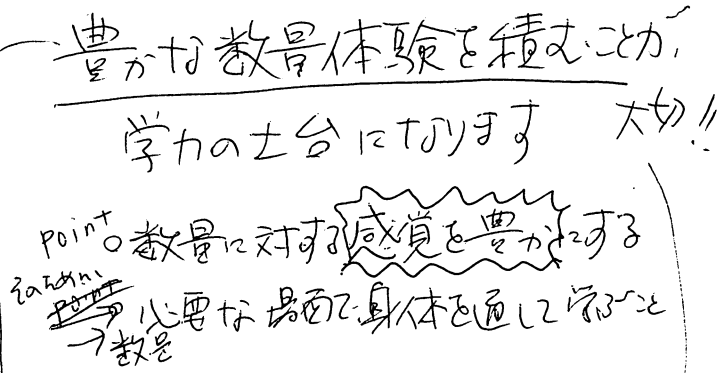 豊かな数量体験を積むことが、
学力の土台になります
大切!!
point
○数量に対する感覚を豊かにする
そのために
point
→必要な場面で身体を通して学ぶこと
→数量